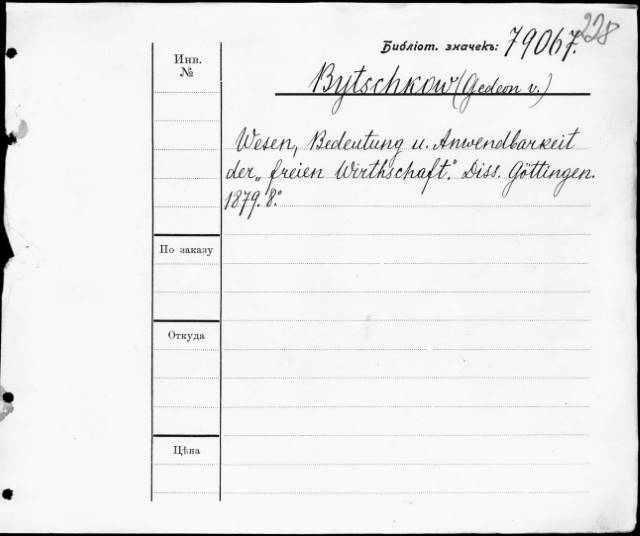 228
Библіот. значекъ: 79067.
Инв.
№
Bytschkow (Gedeon v.)
Wesen, Bedeutung u. Anwendbarkeit
der „freien Wirthschaft“. Diss. Göttingen.
1879. 8.°
По заказу
Откуда
Цѣна